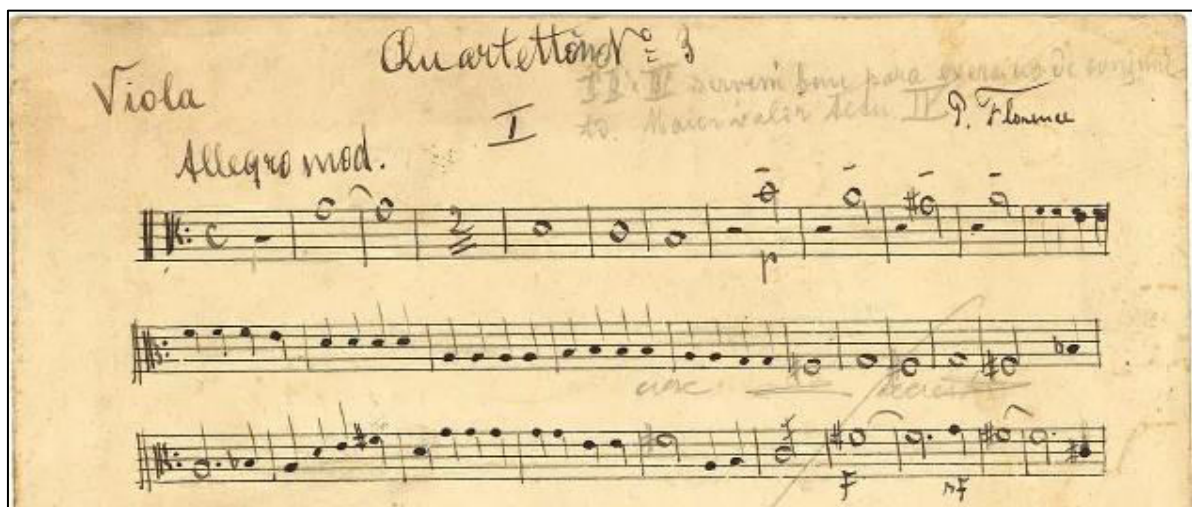 Quartetto Nº 3
Viola
I II e III servem bem para exercicio de conjun-
to. Maior valor tem IV
I
P. Florence
Allegro mod.
2
p
cresc
F
mF